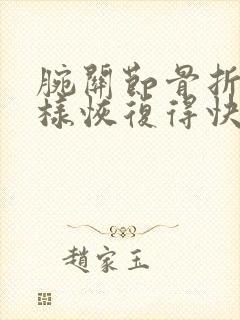 腕關節骨折
樣恢復得快
趙家玉